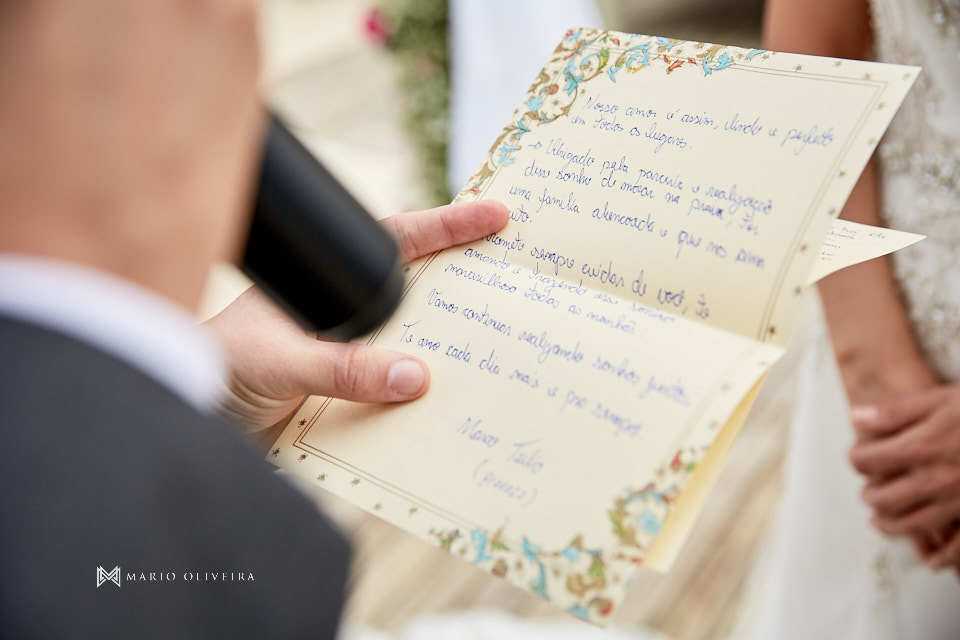 Nosso amor é assim, lindo e perfeito
em todos os lugares.
→ Obrigado pela parceria e realização
desse sonho de morar na praia, ter
uma família abençoada e que nos ama
muito.
Prometo sempre cuidar de você, te
amando e fazendo esse sorriso
maravilhoso todas as manhãs
Vamos continuar realizando sonhos juntos
Te amo cada dia mais e pra sempre
Marco Tulio
MARIO OLIVEIRA